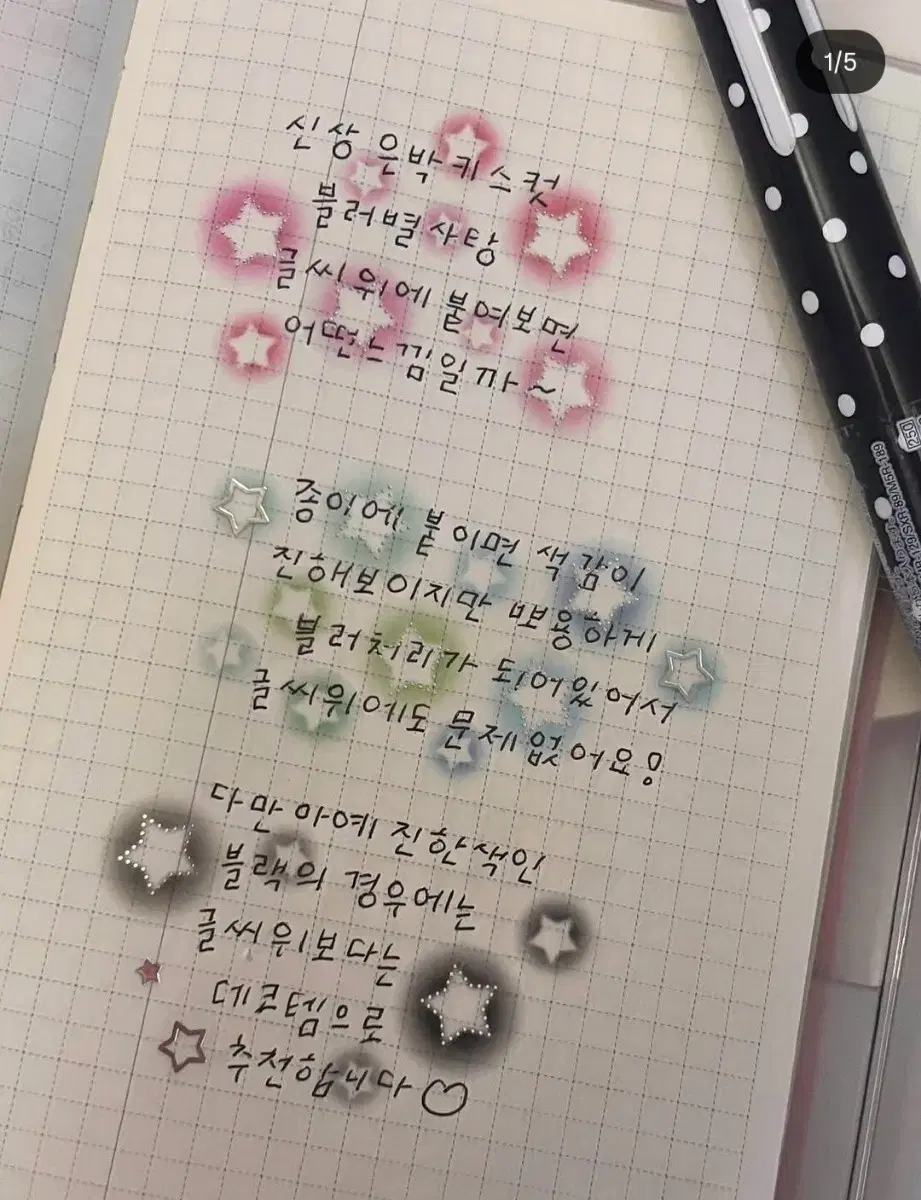 1/5
신상 은박키스컷
블러별사탕
글씨위에 붙여보면
어떤느낌일까~
종이에 붙이면 색감이
진해보이지만 뽀용하게
블러처리가 되어있어서
글씨위에도 문제없어요!
다만 아예 진한색인
블랙의 경우에는
글씨위보다는
데코템으로
추천합니다♡